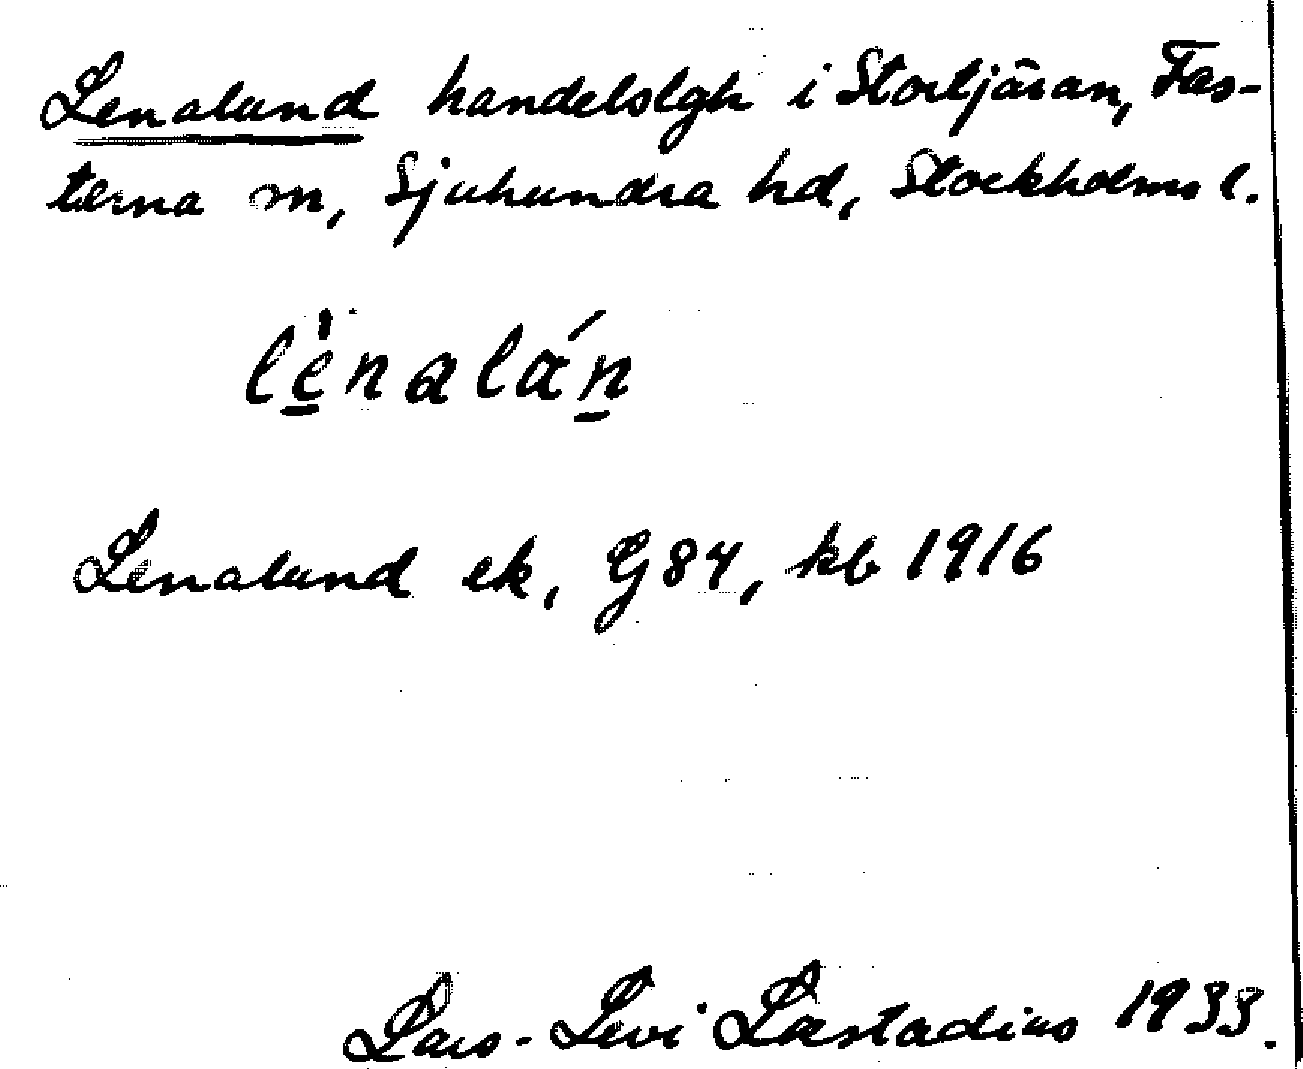 Lenalund handelslgh i Stortjäran, Fas-
terna sn, Sjuhundra hd, Stockholms l.
lènalán
Lenalund ek, G84, kb 1916
Lars-Levi Læstadius 1933.